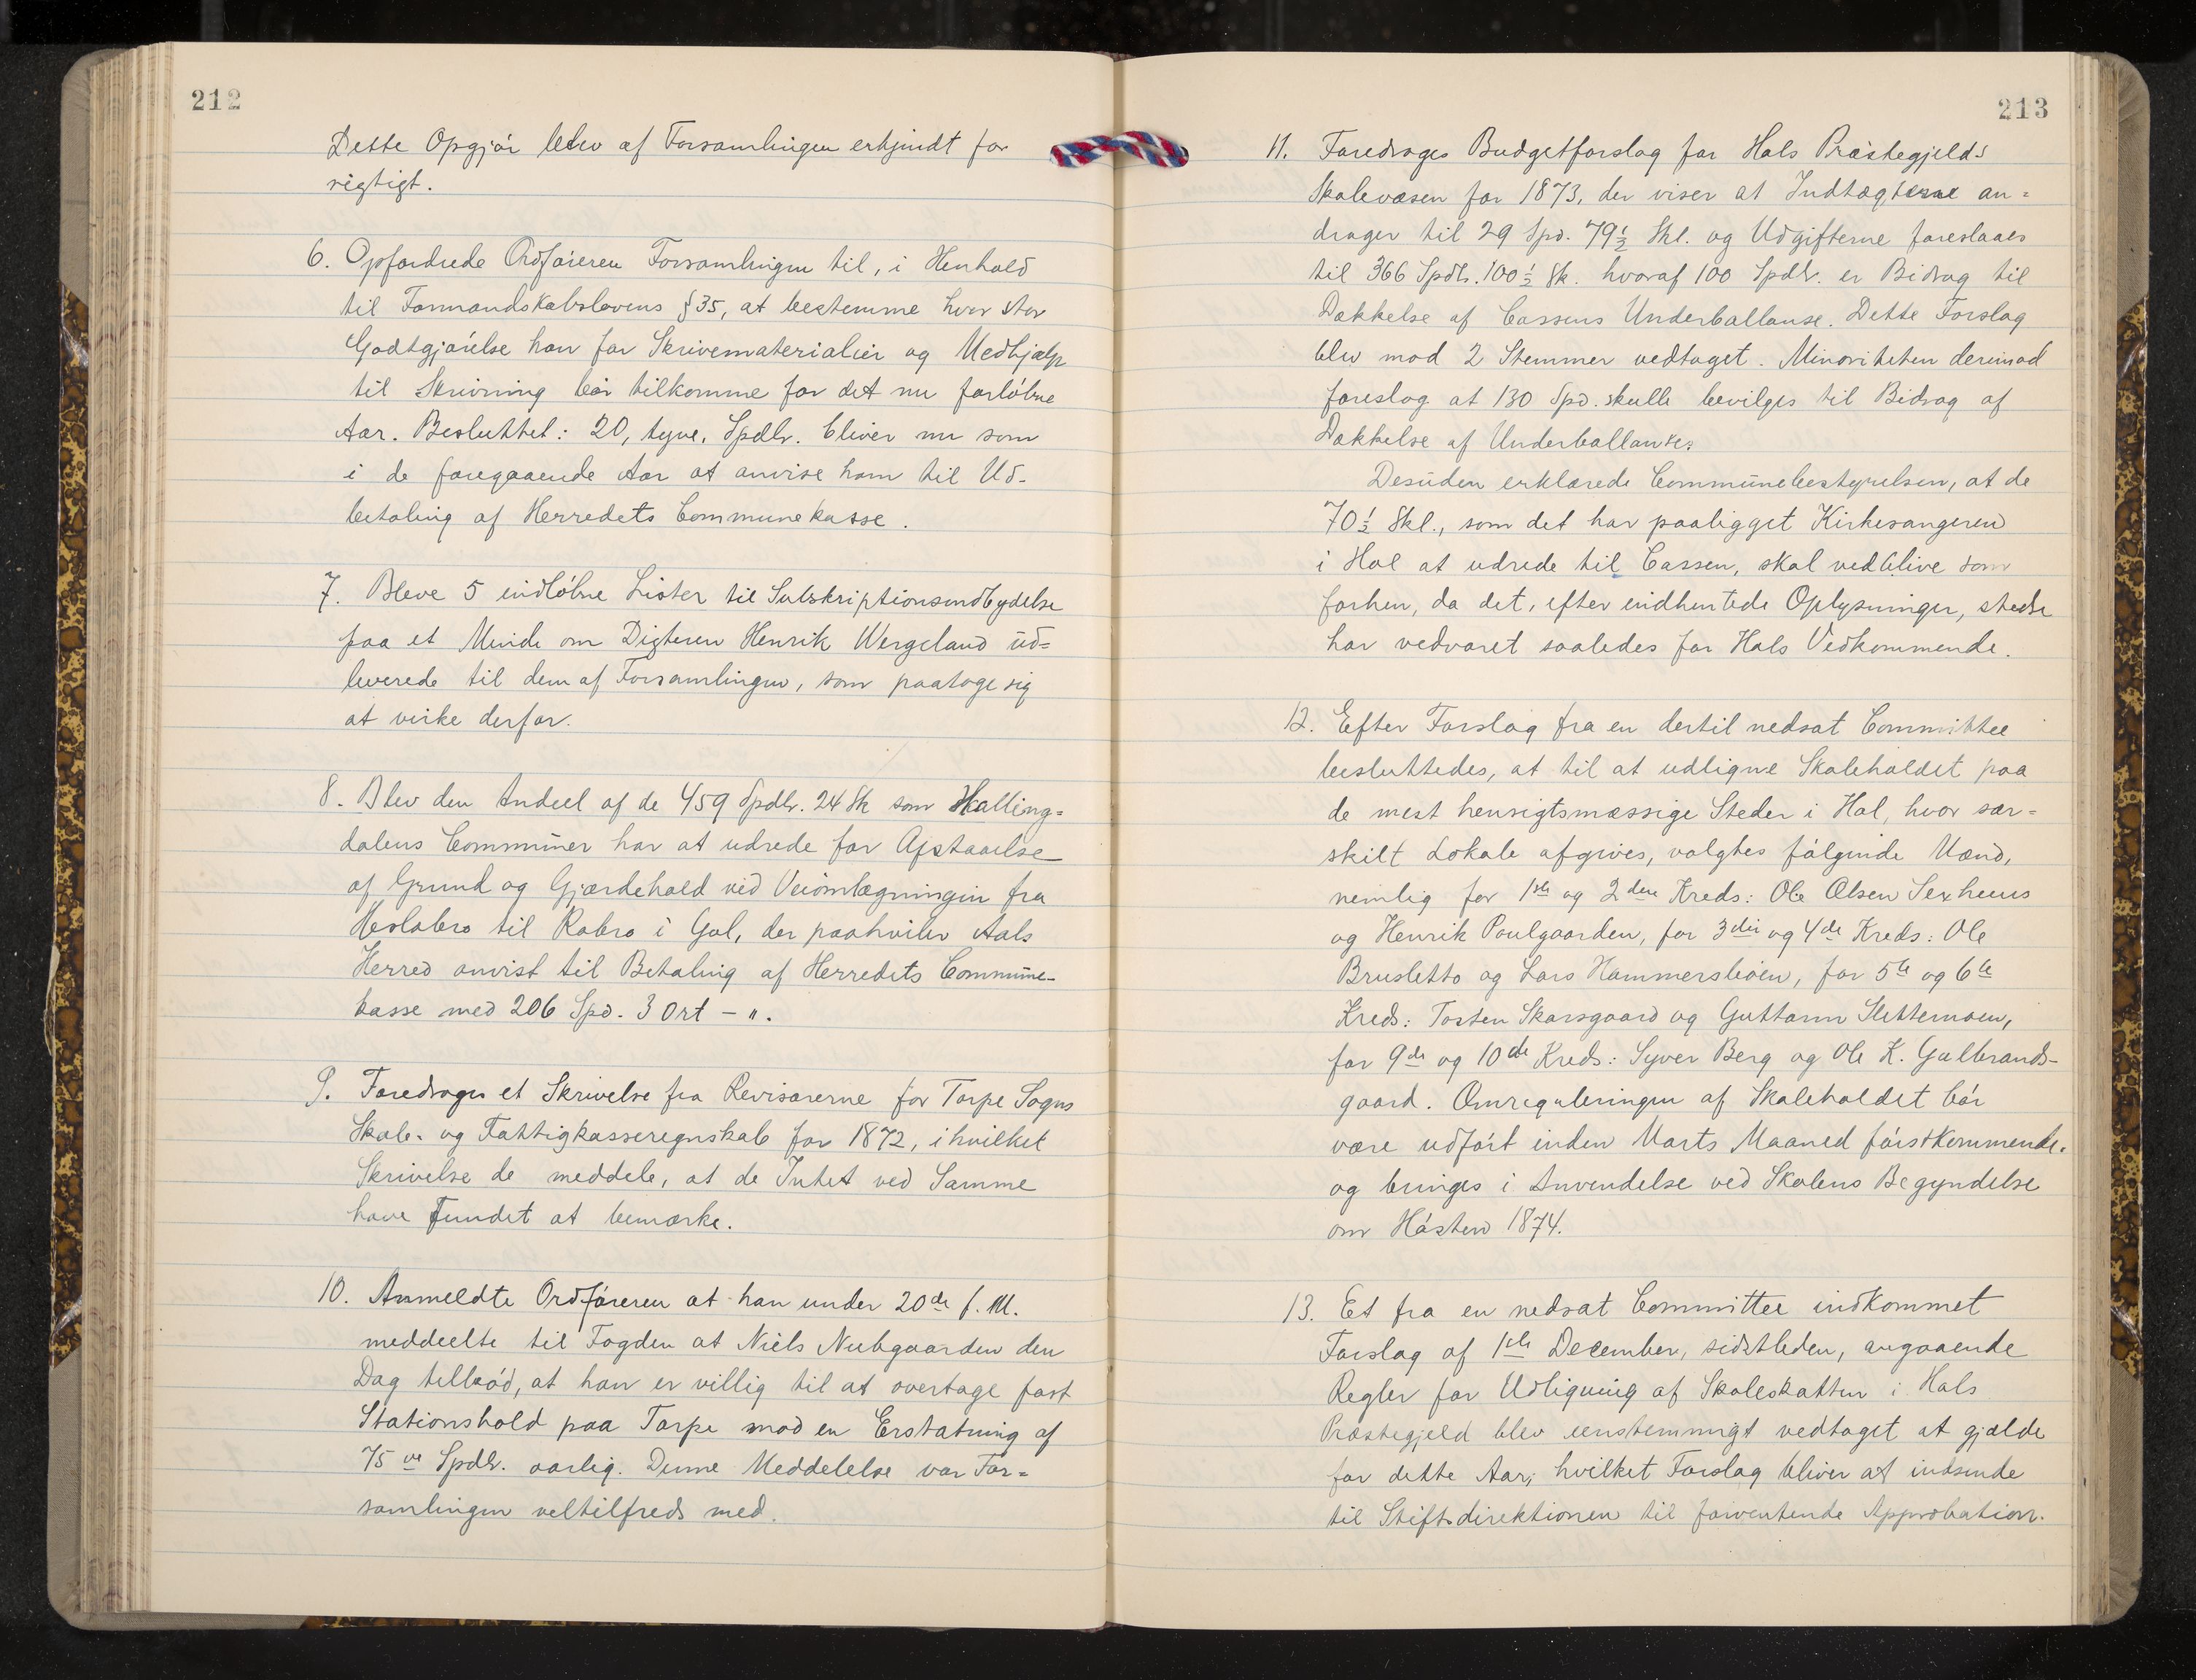 212
Dette Opgjør blev af Forsamlingen erkjendt for
rigtigt.
6. Opfordrede Ordføreren Forsamlingen til, i Henhold
til Formandskabslovens §35, at bestemme hvor stor
Godtgjørelse han for Skrivematerialier og Medhjælp
til Skrivning bør tilkomme for det nu forløbne
Aar. Besluttet: 20, tyve, Spdlr. bliver nu som
i de foregaaende Aar at anvise ham til Ud-
betaling af Herredets Communekasse.
7. Bleve 5 indløbne Lister til Subskriptionsindbydelse
paa et Minde om Digteren Henrik Wergeland ud=
leverede til dem af Forsamlingen, som paatoge sig
at virke derfor.
8. Blev den Andeel af de 459 Spdlr. 24 Sk som Halling=
dalens Communer har at udrede for Afstaaelse
af Grund og Gjærdehold ved Veiomlægningen fra
Heslabro til Robro i Gol, der paahviler Aals
Herred anvist til Betaling af Herredets Commune-
kasse med 206 Spd. 3 Ort - ".
9. Foredroges et Skrivelse fra Revisorerne for Torpe Sogns
Skole- og Fattigkasseregnskab for 1872, i hvilket
Skrivelse de meddele, at de Intet ved Samme
have fundet at bemærke.
10. Anmeldte Ordføreren at han under 20de f. M.
meddeelte til Fogden at Niels Nubgaarden den
Dag tilbød, at han er villig til at overtage fast
Stationshold paa Torpe mod en Erstatning af
75 ve Spdlr. aarlig. Denne Meddelelse var For=
samlingen veltilfreds med.
213
11. Foredroges Budgetforslag for Hols Præstegjelds
Skolevæsen for 1873, der viser at Indtægterne an=
drager til 29 Spd. 79½ Skl. og Udgifterne foreslaaes
til 366 Spdlr. 100½ Sk. hvoraf 100 Spdlr. er Bidrag til
Dækkelse af Cassens Underballanse. Dette Forslag
blev mod 2 Stemmer vedtaget. Minoriteten derimod
foreslog at 130 Spd. skulle bevilges til Bidrag af
Dækkelse af Underballansen.
Desuden erklærede Communebestyrelsen, at de
70½ Skl., som det har paaligget Kirkesangeren
i Hol at udrede til Cassen, skal vedblive som
forhen, da det, efter indhentede Oplysninger, stedse
har vedvaret saaledes for Hols Vedkommende.
12. Efter Forslag fra en dertil nedsat Committee
besluttedes, at til at udligne Skoleholdet paa
de mest hensigtsmæssige Steder i Hol, hvor sær=
skilt Lokale afgives, valgtes følgende Mænd,
nemlig for 1ste og 2den Kreds: Ole Olsen Sexhuus
og Henrik Poulgaarden, for 3die og 4de Kreds: Ole
Brusletto og Lars Hammersbøen, for 5te og 6te
Kreds: Tosten Skarsgaard og Guttorm Slettemoen,
for 9de og 10de Kreds: Syver Berg og Ole K. Gulbrands-
gaard. Omreguleringen af Skoleholdet bør
være udført inden Marts Maaned førstkommende.
og bringes i Anvendelse ved Skolens Begyndelse
om Høsten 1874.
13. Et fra en nedsat Committee indkommet
Forslag af 1ste December, sidstleden, angaaende
Regler for Udligning af Skoleskatten i Hols
Præstegjeld blev eenstemmigt vedtaget at gjælde
for dette Aar; hvilket Forslag bliver at indsende
til Stiftsdirektionen til forventende Approbation.